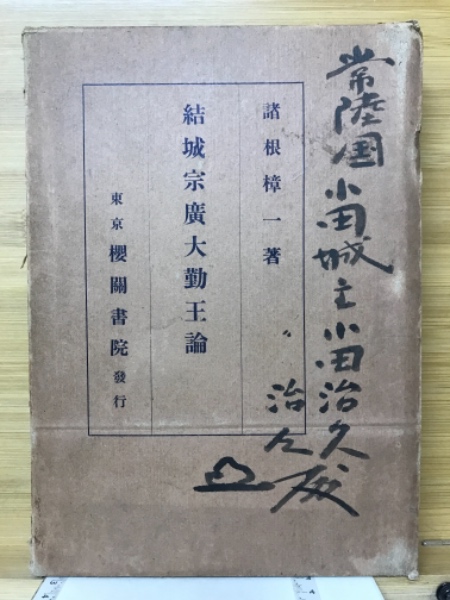 常陸国小田城主小田治久
〃治久
諸根樟一著
結城宗廣大勤王論
東京櫻關書院發行